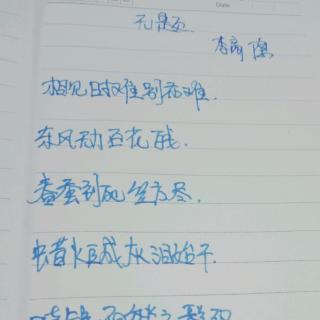 Date
无题
李商隐
相见时难别亦难.
东风无力百花残.
春蚕到死丝方尽.
蜡炬成灰泪始干.